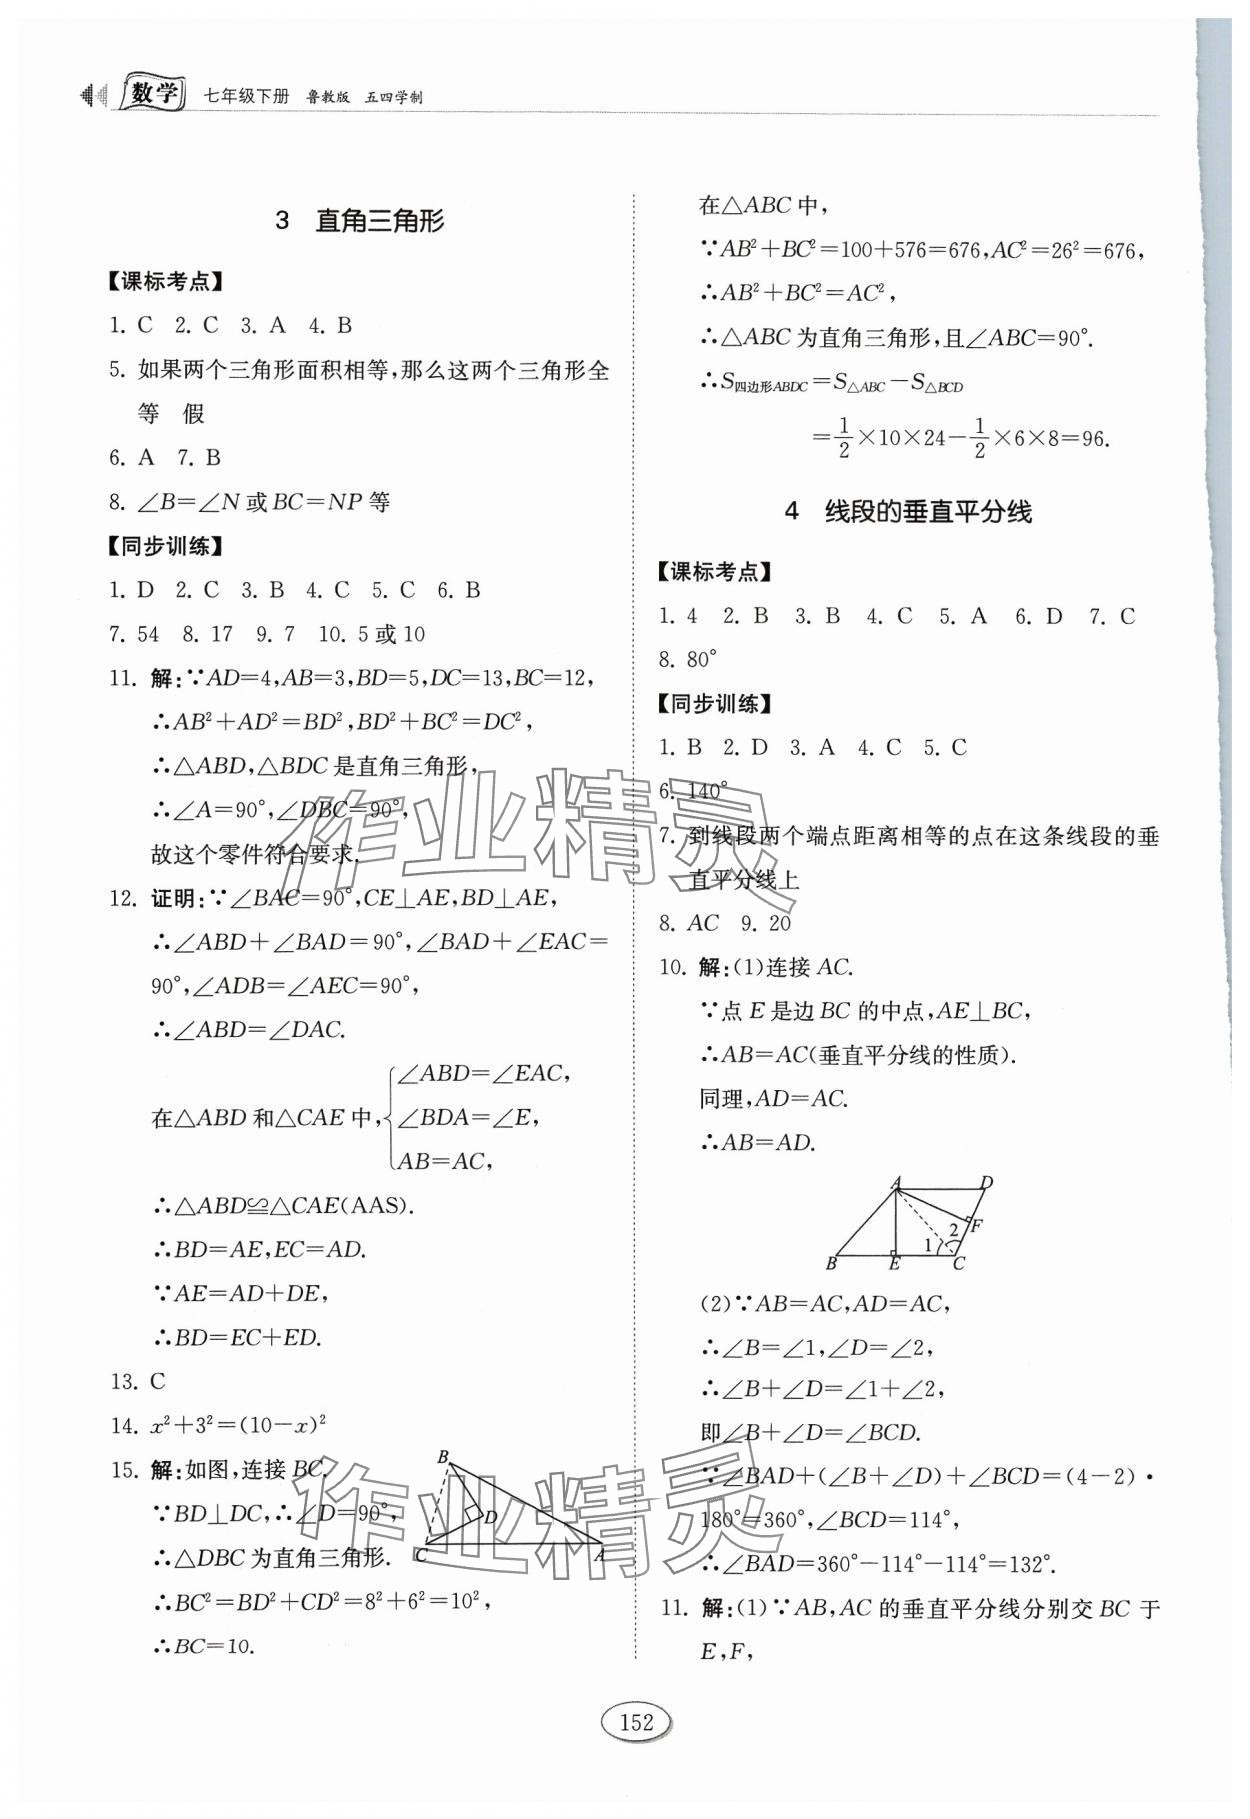 数学 七年级下册 鲁教版 五四学制
3 直角三角形
【课标考点】
1. C 2. C 3. A 4. B
5. 如果两个三角形面积相等,那么这两个三角形全
等 假
6. A 7. B
8. ∠B=∠N 或 BC=NP 等
【同步训练】
1. D 2. C 3. B 4. C 5. C 6. B
7. 54 8. 17 9. 7 10. 5 或 10
11. 解:∵AD=4,AB=3,BD=5,DC=13,BC=12,
∴AB²+AD²=BD²,BD²+BC²=DC²,
∴△ABD,△BDC 是直角三角形,
∴∠A=90°,∠DBC=90°,
故这个零件符合要求.
12. 证明:∵∠BAC=90°,CE⊥AE,BD⊥AE,
∴∠ABD+∠BAD=90°,∠BAD+∠EAC=
90°,∠ADB=∠AEC=90°,
∴∠ABD=∠DAC.
∠ABD=∠EAC,
在△ABD 和△CAE 中, ∠BDA=∠E,
AB=AC,
∴△ABD≌△CAE(AAS).
∴BD=AE,EC=AD.
∵AE=AD+DE,
∴BD=EC+ED.
13. C
14. x²+3²=(10-x)²
15. 解:如图,连接 BC.
∵BD⊥DC,∴∠D=90°,
∴△DBC 为直角三角形.
∴BC²=BD²+CD²=8²+6²=10²,
∴BC=10.
B
D
C
A
在△ABC 中,
∵AB²+BC²=100+576=676,AC²=26²=676,
∴AB²+BC²=AC²,
∴△ABC 为直角三角形,且∠ABC=90°.
∴S四边形ABDC=S△ABC-S△BCD
=1/2×10×24-1/2×6×8=96.
4 线段的垂直平分线
【课标考点】
1. 4 2. B 3. B 4. C 5. A 6. D 7. C
8. 80°
【同步训练】
1. B 2. D 3. A 4. C 5. C
6. 140°
7. 到线段两个端点距离相等的点在这条线段的垂
直平分线上
8. AC 9. 20
10. 解:(1)连接 AC.
∵点 E 是边 BC 的中点,AE⊥BC,
∴AB=AC(垂直平分线的性质).
同理,AD=AC.
∴AB=AD.
A D
F
2
1
B E C
(2)∵AB=AC,AD=AC,
∴∠B=∠1,∠D=∠2,
∴∠B+∠D=∠1+∠2,
即∠B+∠D=∠BCD.
∵∠BAD+(∠B+∠D)+∠BCD=(4-2)·
180°=360°,∠BCD=114°,
∴∠BAD=360°-114°-114°=132°.
11. 解:(1)∵AB,AC 的垂直平分线分别交 BC 于
E,F,
152
作业精灵
作业精灵